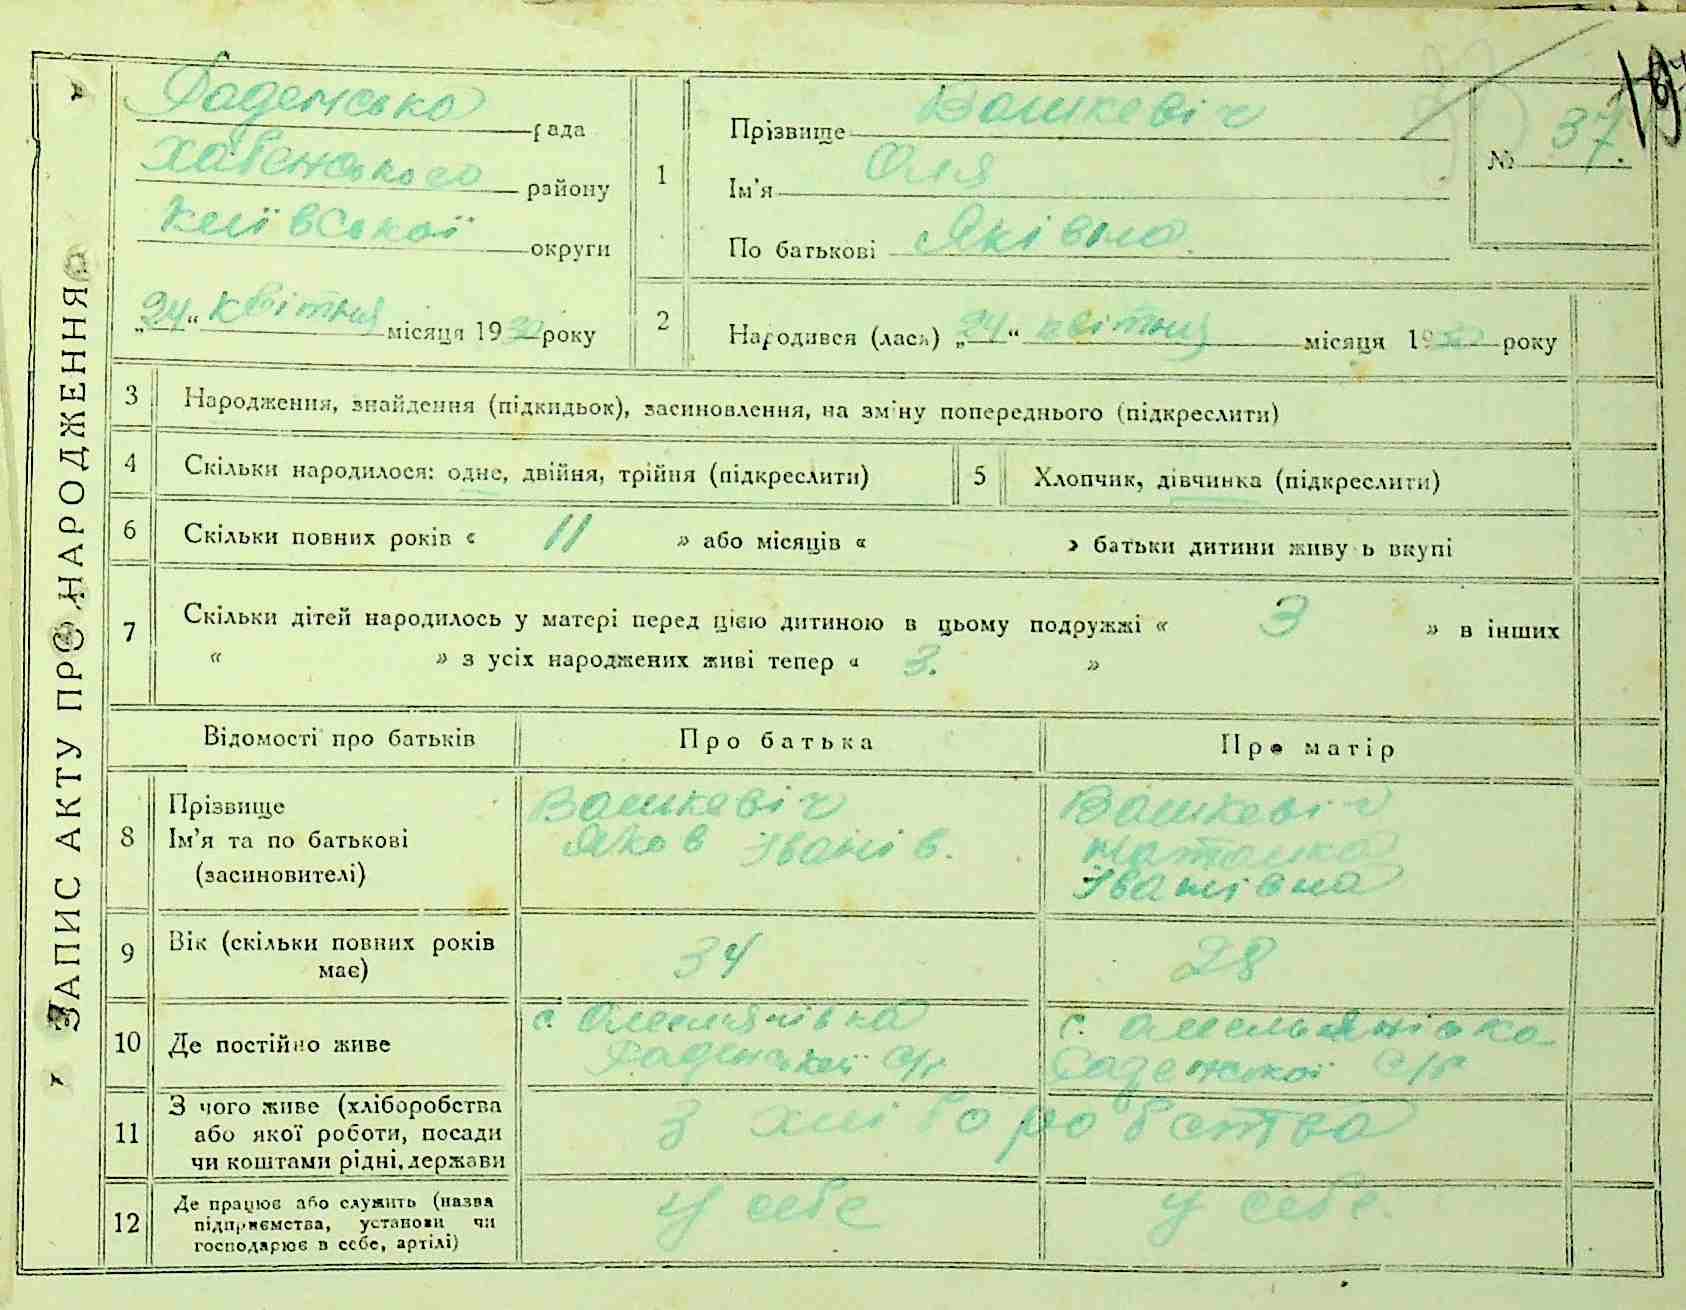 ЗАПИС АКТУ ПРО НАРОДЖЕННЯ
Раденська рада
Хабенського району
Київської округи
„24“ квітня місяця 1930 року
1
Прізвище Вашкевіч
Ім'я Оля
По батькові Яківна.
№ 37.
2
Народився (лась) „24“ квітня місяця 1930 року
3 Народження, знайдення (підкидьок), засиновлення, на зміну попереднього (підкреслити)
4 Скільки народилося: одне, двійня, трійня (підкреслити)
5 Хлопчик, дівчинка (підкреслити)
6 Скільки повних років « 11 » або місяців « » батьки дитини живуть вкупі
7 Скільки дітей народилось у матері перед цією дитиною в цьому подружжі « 3 » в інших
« » з усіх народжених живі тепер « 3. »
Відомості про батьків Про батька Про матір
8 Прізвище
Ім'я та по батькові
(засиновителі)
Вашкевіч
Яков Іванів.
Вашкевіч
Наташка
Іванівна
9 Вік (скільки повних років
має)
34
28
10 Де постійно живе
с. Омелянівка
Раденської с/р
с. Омельянівка
Раденської с/р
11 З чого живе (хліборобства
або якої роботи, посади
чи коштами рідні, держави
З хліборобства
12 Де працює або служить (назва
підприємства, установи чи
господарює в себе, артілі)
у себе
у себе.